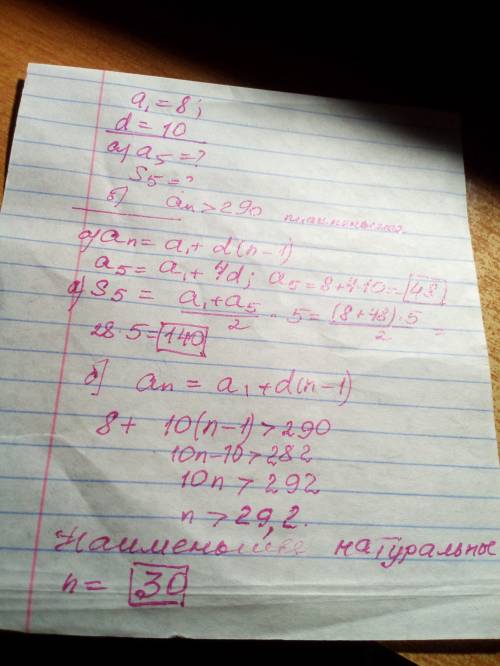 a₁ = 8;
d = 10
a) a₅ = ?
S₅ = ?
б) aₙ > 290
a) aₙ = a₁ + d(n-1)
a₅ = a₁ + 4d; a₅ = 8 + 4·10 = 48
a) S₅ = (a₁ + a₅)/2 · 5 = (8+48)·5/2 =
28·5 = 140
б) aₙ = a₁ + d(n-1)
8 + 10(n-1) > 290
10n-10 > 282
10n > 292
n > 29,2.
натуральные
n = 30